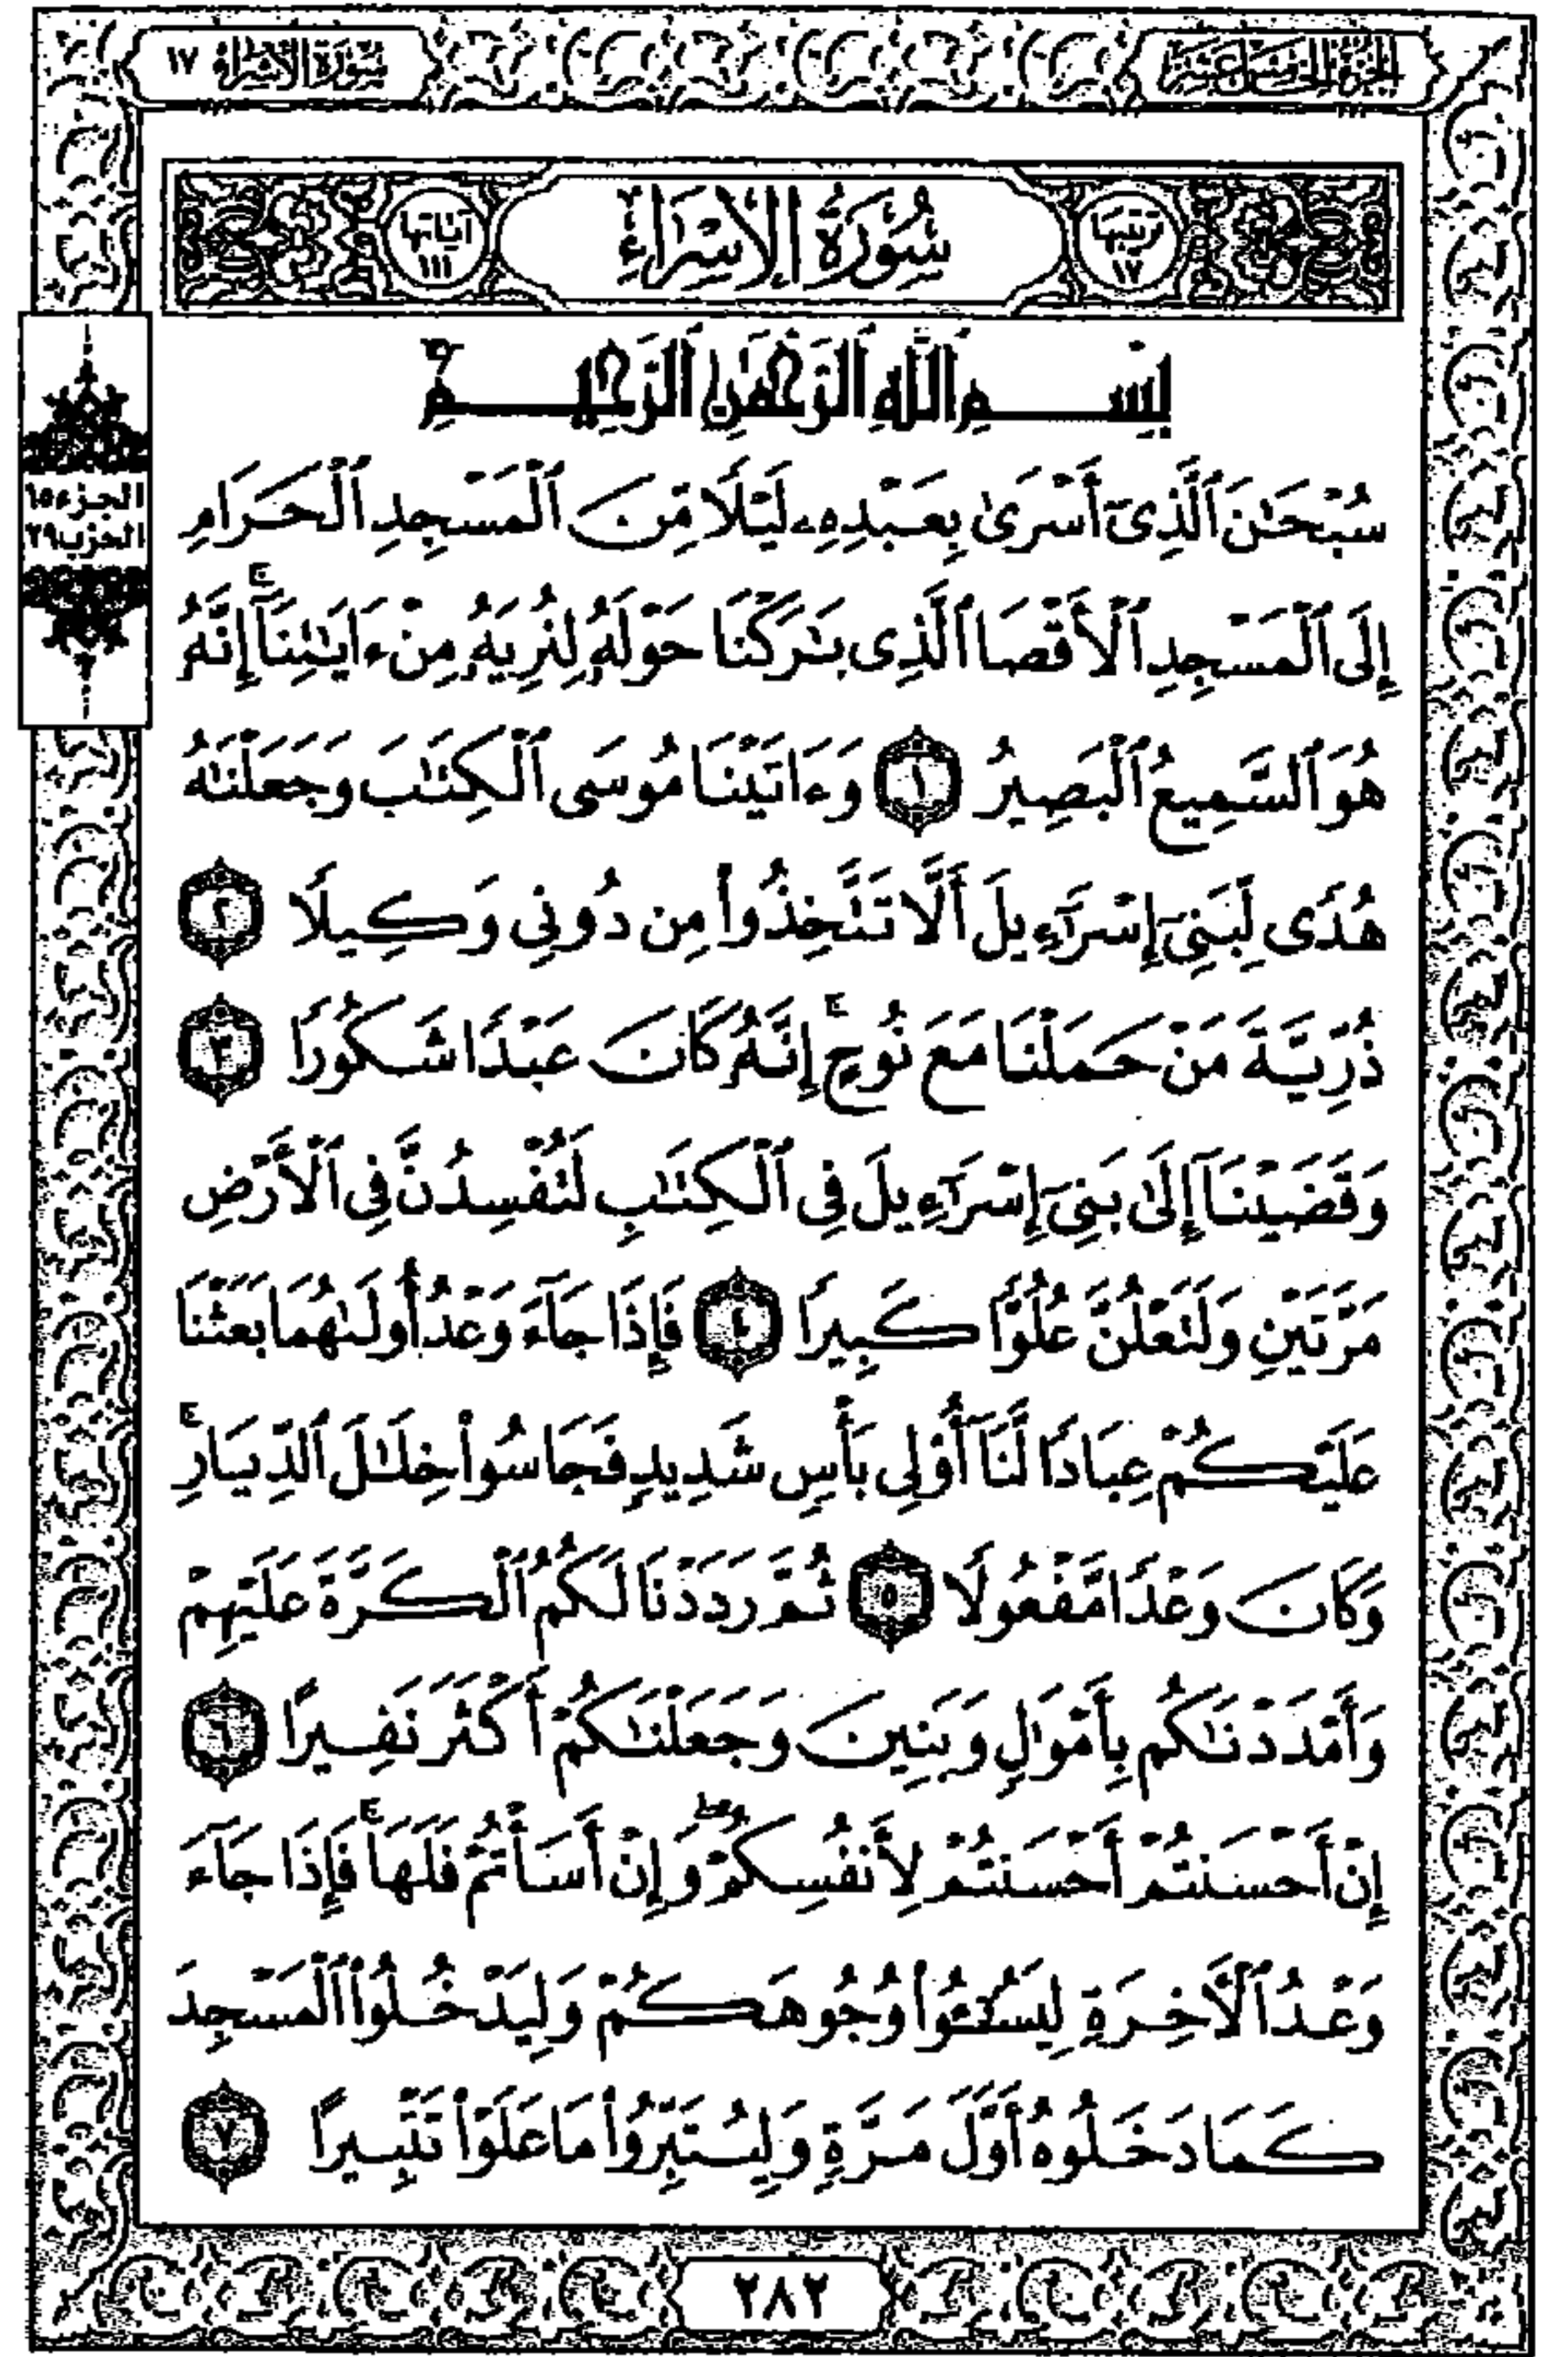 الجزء الخامس عشر
سورة الإسراء ١٧
ترتيبها ١٧
سُورَةُ الإِسْرَاءِ
آياتها ١١١
بِسْمِ ٱللَّهِ ٱلرَّحْمَٰنِ ٱلرَّحِيمِ
سُبْحَٰنَ ٱلَّذِىٓ أَسْرَىٰ بِعَبْدِهِۦ لَيْلًا مِّنَ ٱلْمَسْجِدِ ٱلْحَرَامِ
إِلَى ٱلْمَسْجِدِ ٱلْأَقْصَا ٱلَّذِى بَٰرَكْنَا حَوْلَهُۥ لِنُرِيَهُۥ مِنْ ءَايَٰتِنَآ ۚ إِنَّهُۥ
هُوَ ٱلسَّمِيعُ ٱلْبَصِيرُ ١ وَءَاتَيْنَا مُوسَى ٱلْكِتَٰبَ وَجَعَلْنَٰهُ
هُدًى لِّبَنِىٓ إِسْرَٰٓءِيلَ أَلَّا تَتَّخِذُوا۟ مِن دُونِى وَكِيلًا ٢
ذُرِّيَّةَ مَنْ حَمَلْنَا مَعَ نُوحٍ ۚ إِنَّهُۥ كَانَ عَبْدًا شَكُورًا ٣
وَقَضَيْنَآ إِلَىٰ بَنِىٓ إِسْرَٰٓءِيلَ فِى ٱلْكِتَٰبِ لَتُفْسِدُنَّ فِى ٱلْأَرْضِ
مَرَّتَيْنِ وَلَتَعْلُنَّ عُلُوًّا كَبِيرًا ٤ فَإِذَا جَآءَ وَعْدُ أُولَىٰهُمَا بَعَثْنَا
عَلَيْكُمْ عِبَادًا لَّنَآ أُو۟لِى بَأْسٍ شَدِيدٍ فَجَاسُوا۟ خِلَٰلَ ٱلدِّيَارِ ۚ
وَكَانَ وَعْدًا مَّفْعُولًا ٥ ثُمَّ رَدَدْنَا لَكُمُ ٱلْكَرَّةَ عَلَيْهِمْ
وَأَمْدَدْنَٰكُم بِأَمْوَٰلٍ وَبَنِينَ وَجَعَلْنَٰكُمْ أَكْثَرَ نَفِيرًا ٦
إِنْ أَحْسَنتُمْ أَحْسَنتُمْ لِأَنفُسِكُمْ ۖ وَإِنْ أَسَأْتُمْ فَلَهَا ۚ فَإِذَا جَآءَ
وَعْدُ ٱلْءَاخِرَةِ لِيَسُۥٓـُٔوا۟ وُجُوهَكُمْ وَلِيَدْخُلُوا۟ ٱلْمَسْجِدَ
كَمَا دَخَلُوهُ أَوَّلَ مَرَّةٍ وَلِيُتَبِّرُوا۟ مَا عَلَوْا۟ تَتْبِيرًا ٧
الجزء ١٥
الحزب ٢٩
٢٨٢